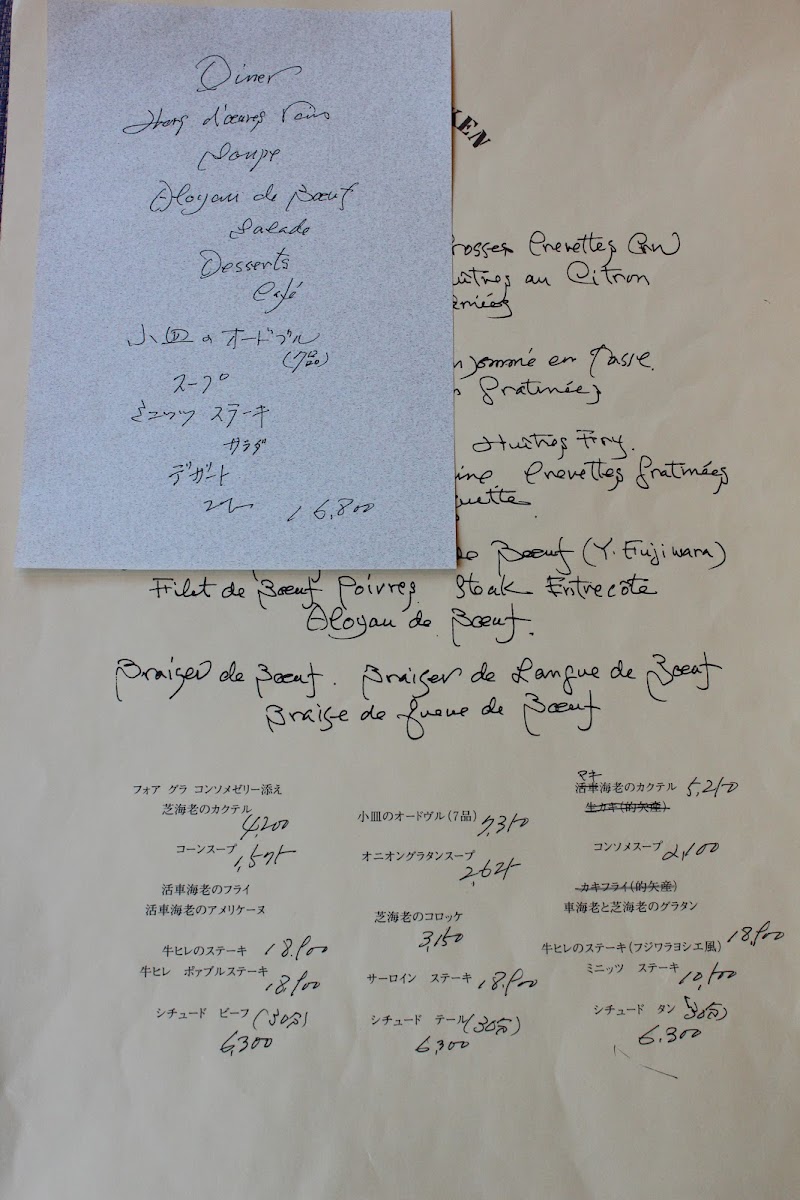 Diner
Hors d'œuvres Variés
Soupe
Aloyau de Bœuf
Salade
Desserts
Café
小皿のオードブル
(7品)
スープ
ミニッツ ステーキ
サラダ
デザート
コーヒー 16,800
KEN
rosses Crevettes
uîtres au Citron
ommé en Tasse.
Gratinées
Huîtres Fry.
ine Crevettes Gratinées
uette
de Bœuf (Y. Fujiwara)
Filet de Bœuf Poivres Steak Entrecôte
Aloyau de Bœuf.
Braiser de Bœuf. Braiser de Langue de Bœuf
Braise de Queue de Bœuf
マキ
フォア グラ コンソメゼリー添え 活車海老のカクテル 5,250
芝海老のカクテル 小皿のオードヴル(7品) 生カキ(的矢産)
4,200 7,350
コーンスープ オニオングラタンスープ コンソメスープ 2,100
1,575 2,625
活車海老のフライ カキフライ(的矢産)
活車海老のアメリケーヌ 芝海老のコロッケ 車海老と芝海老のグラタン
3,150
牛ヒレのステーキ 18,900 牛ヒレのステーキ(フジワラヨシエ風) 18,900
牛ヒレ ポァブルステーキ サーロイン ステーキ 18,900 ミニッツ ステーキ 10,500
18,900
シチュード ビーフ(30分) シチュード テール(30分) シチュード タン(30分)
6,300 6,300 6,300